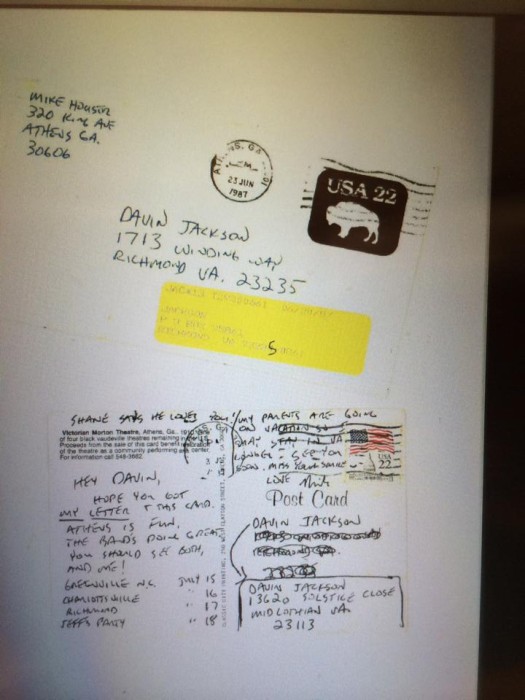 MIKE HOUSER
320 King AVE
ATHENS GA.
30606
GA
23 JUN
1987
USA 22
DAVIN JACKSON
1713 WINDING WAY
RICHMOND VA. 23235
JACKSON
SHANE SAYS HE LOVES YOU!
MY PARENTS ARE GOING
ON VACATION SO
MAY STAY IN VA.
LONGER - SEE YOU
SOON. MISS YOUR SMILE
LOVE Mike
Victorian Morton Theatre, Athens, Ga., 1910
of four black vaudeville theatres remaining in
Proceeds from the sale of this card benefit
of the theatre as a community performing arts center.
For information call 549-3682
USA
22
HEY DAVIN,
HOPE YOU GOT
MY LETTER & THIS CARD.
ATHENS IS FUN.
THE BANDS DOING GREAT
YOU SHOULD SEE BOTH,
AND ME!
GREENVILLE N.C. JULY 15
CHARLOTTSVILLE " 16
RICHMOND " 17
JEFFS PARTY " 18
Post Card
DAVIN JACKSON
DAVIN JACKSON
13620 SOLSTICE CLOSE
MIDLOTHIAN VA.
23113